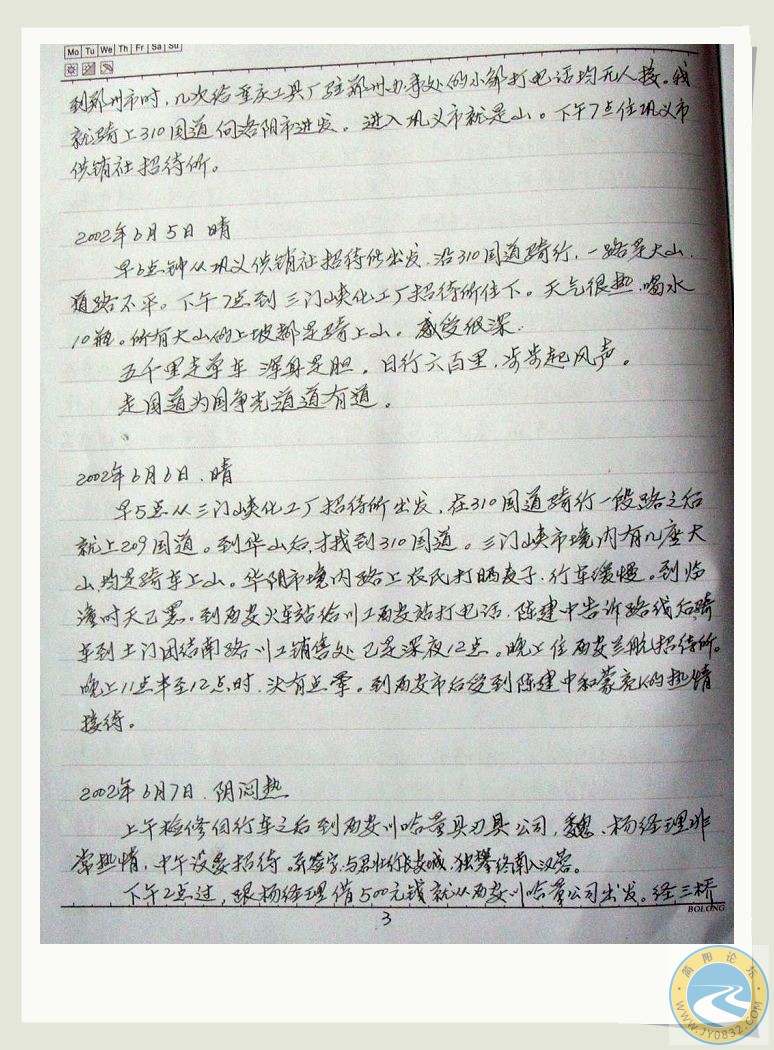 Mo Tu We Th Fr Sa Su
到郑州市时,几次给重庆工具厂驻郑州办事处的小邹打电话均无人接。我
就骑上310国道向洛阳市进发。进入巩义市就是山。下午7点住巩义市
供销社招待所。
2002年6月5日 晴
早6点钟从巩义供销社招待所出发,沿310国道骑行,一路是大山,
道路不平。下午7点到三门峡化工厂招待所住下。天气很热,喝水
10瓶。所有大山的上坡都是骑上山。感受很深:
五千里走单车 浑身是胆。日行六百里,步步起风声。
走国道为国争光道道有道。
2002年6月6日.晴
早5点从三门峡化工厂招待所出发,在310国道骑行一段路之后
就上209国道。到华山后,才找到310国道。三门峡市境内有几座大
山,均是骑车上山。华阴市境内路上农民打晒麦子,行车缓慢。到临
潼时天已黑。到西安火车站给川工西安站打电话,陈建中告诉路线后,骑
车到土门团结南路川工销售处已是深夜12点。晚上住西安兰航招待所。
晚上11点半至12点时,次有点季。到西安市后受到陈建中和蒙亮的热情
接待。
2002年6月7日.阴闷热
上午检修自行车之后到西安川哈量具刃具公司,魏、杨经理非
常热情,中午设宴招待。
下午2点过,跟杨经理借500元钱就从西安川哈量公司出发。经三桥
BOLONG
3
简阳论坛
WWW.JY0832.COM